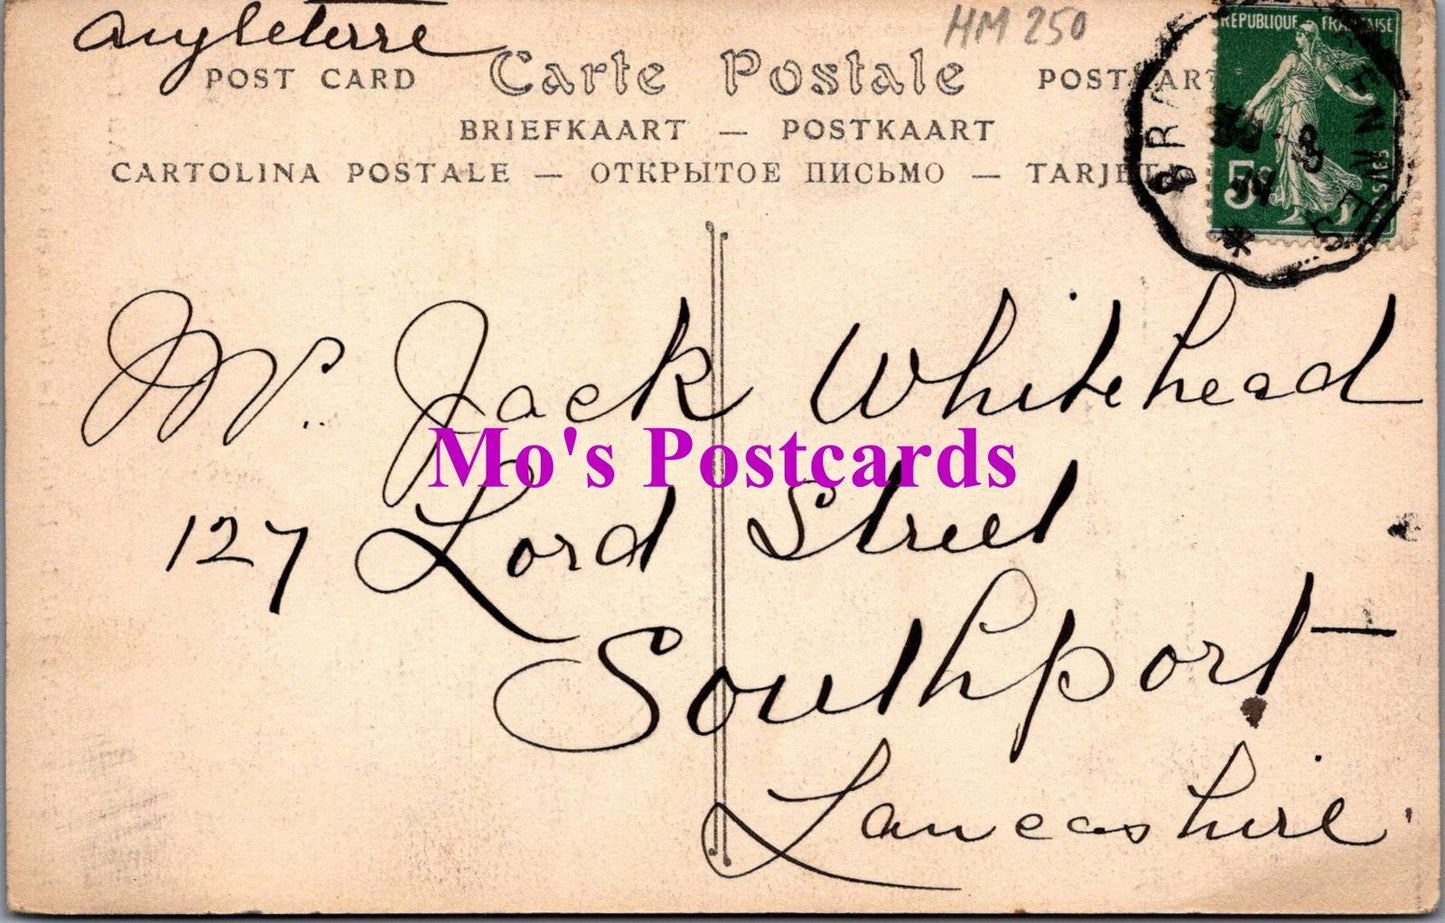 Angleterre
HM 250
POST CARD Carte Postale POSTKART
BRIEFKAART — POSTKAART
CARTOLINA POSTALE — ОТКРЫТОЕ ПИСЬМО — TARJETA
REPUBLIQUE FRANÇAISE
5c
Mr. Jack Whitehead
Mo's Postcards
127 Lord Street
Southport
Lancashire.